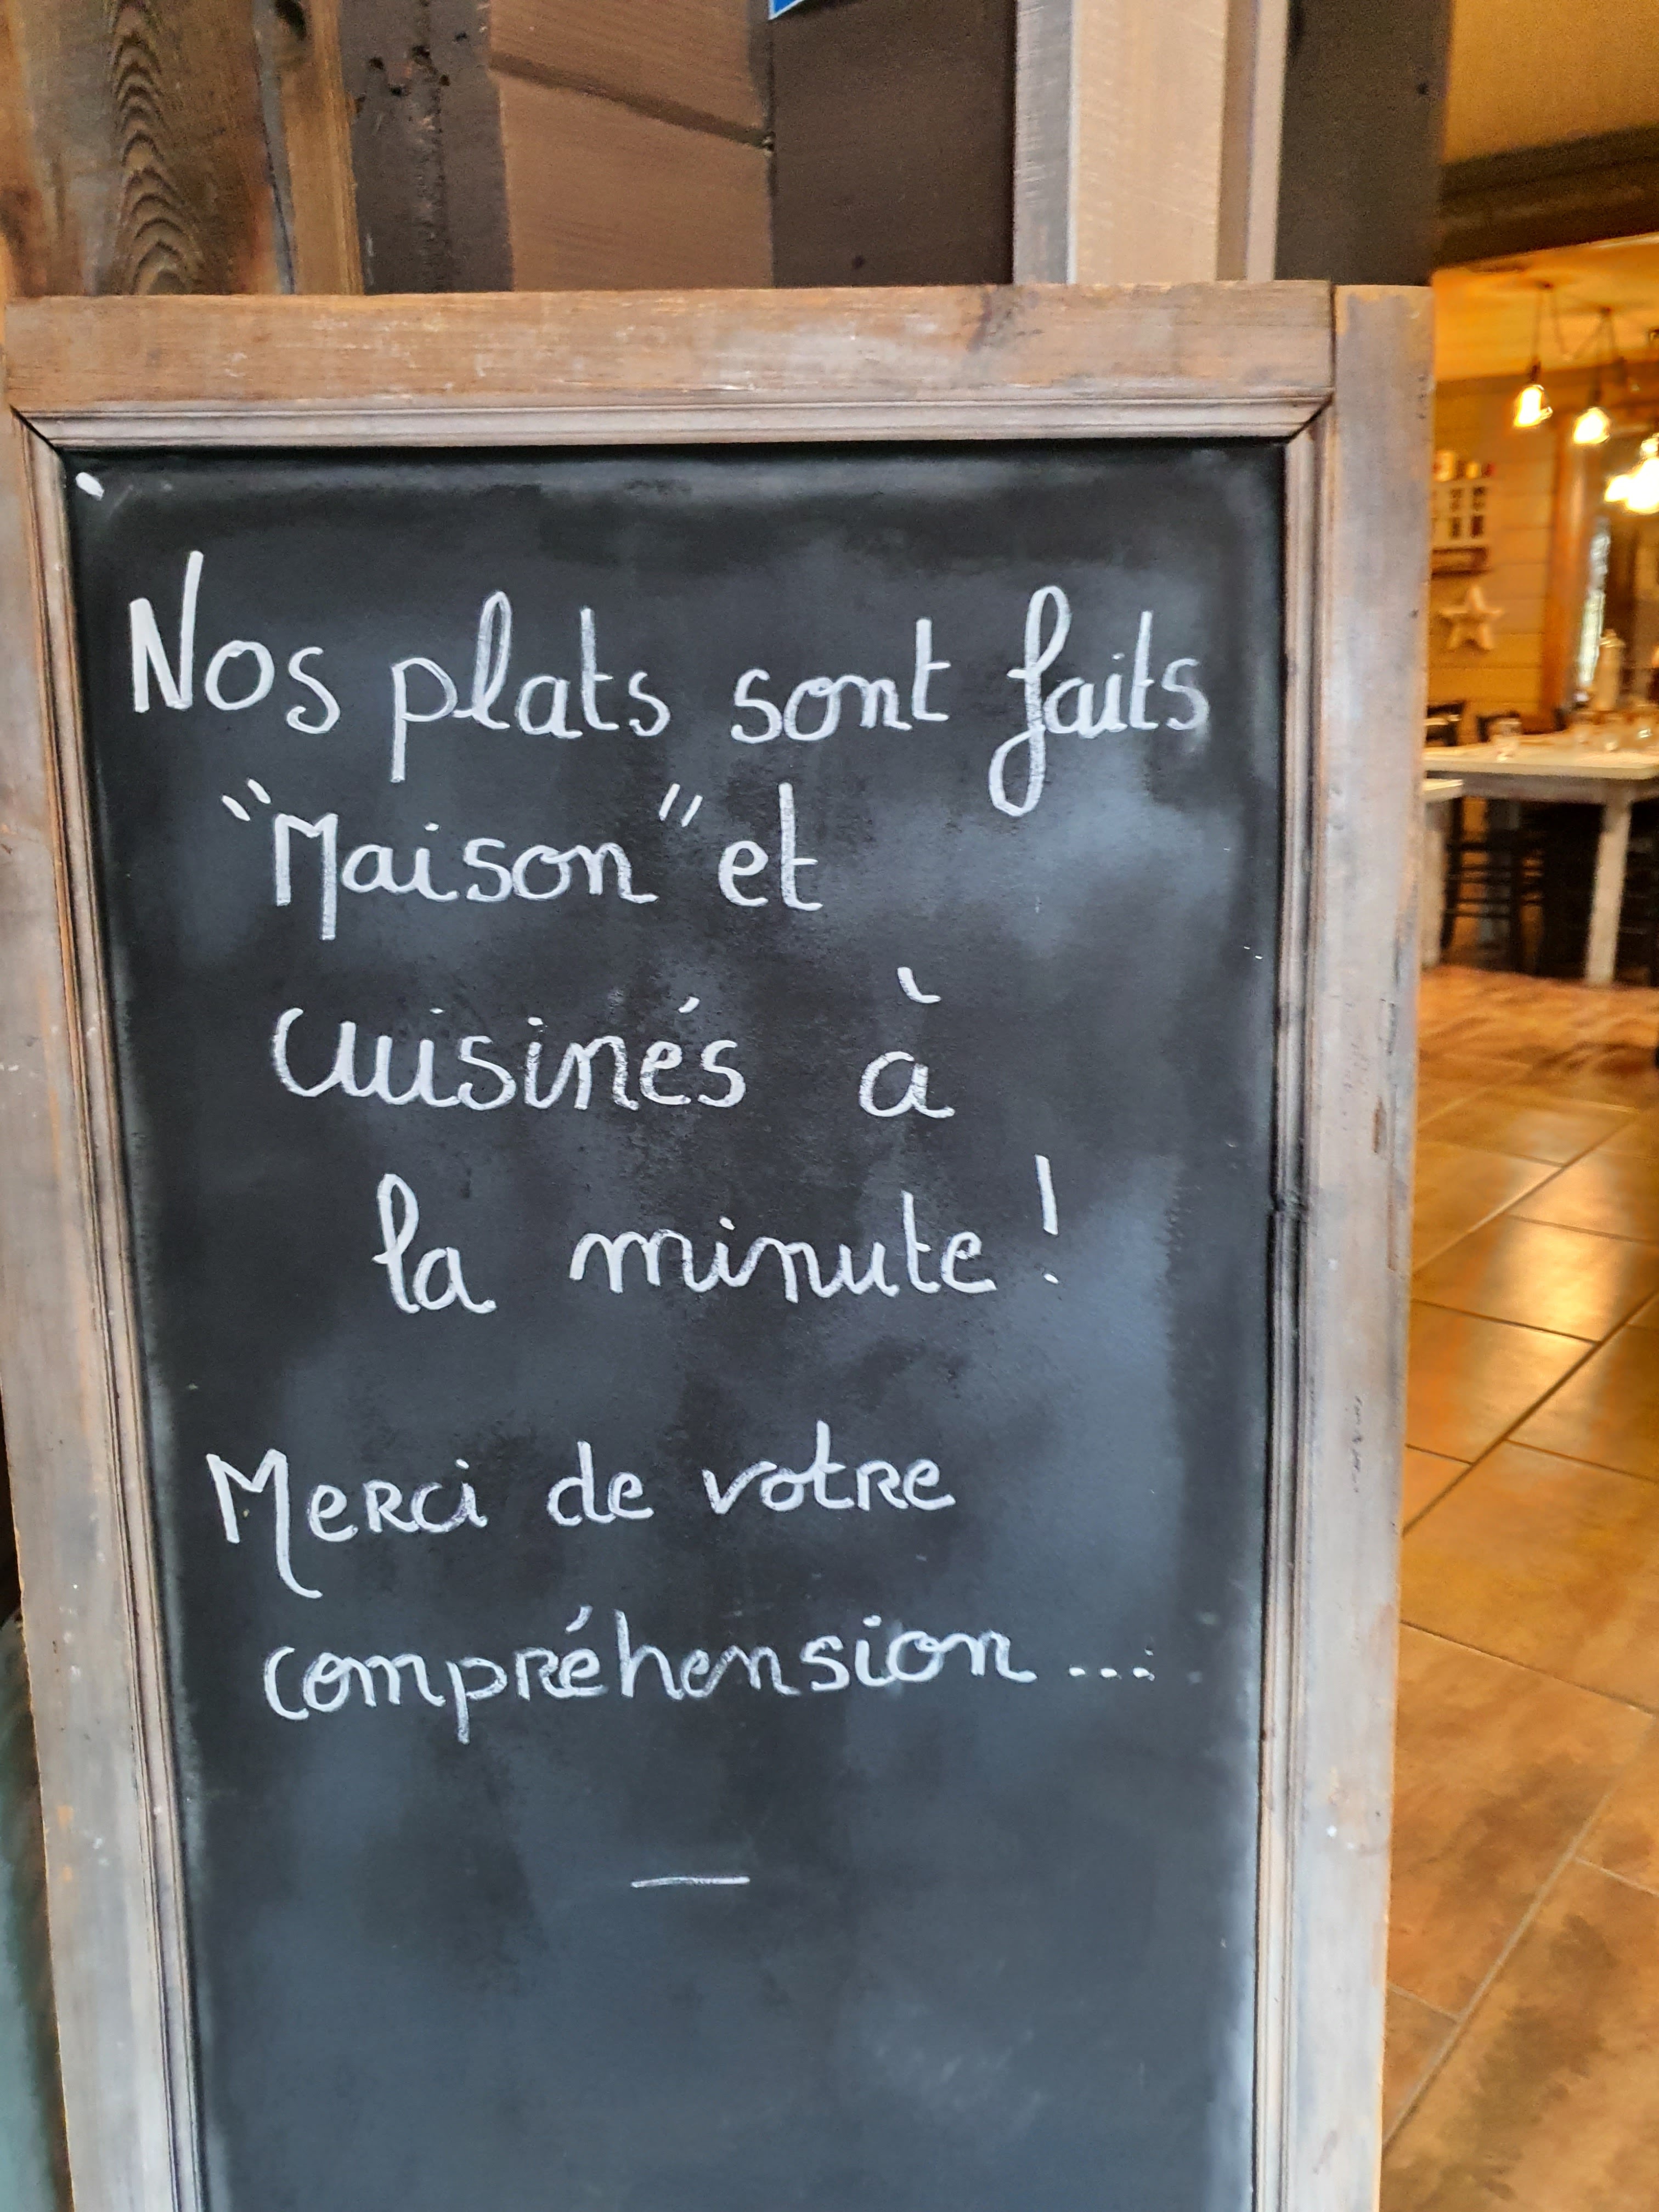 Nos plats sont faits
"Maison" et
cuisinés à
la minute !
Merci de votre
compréhension ...